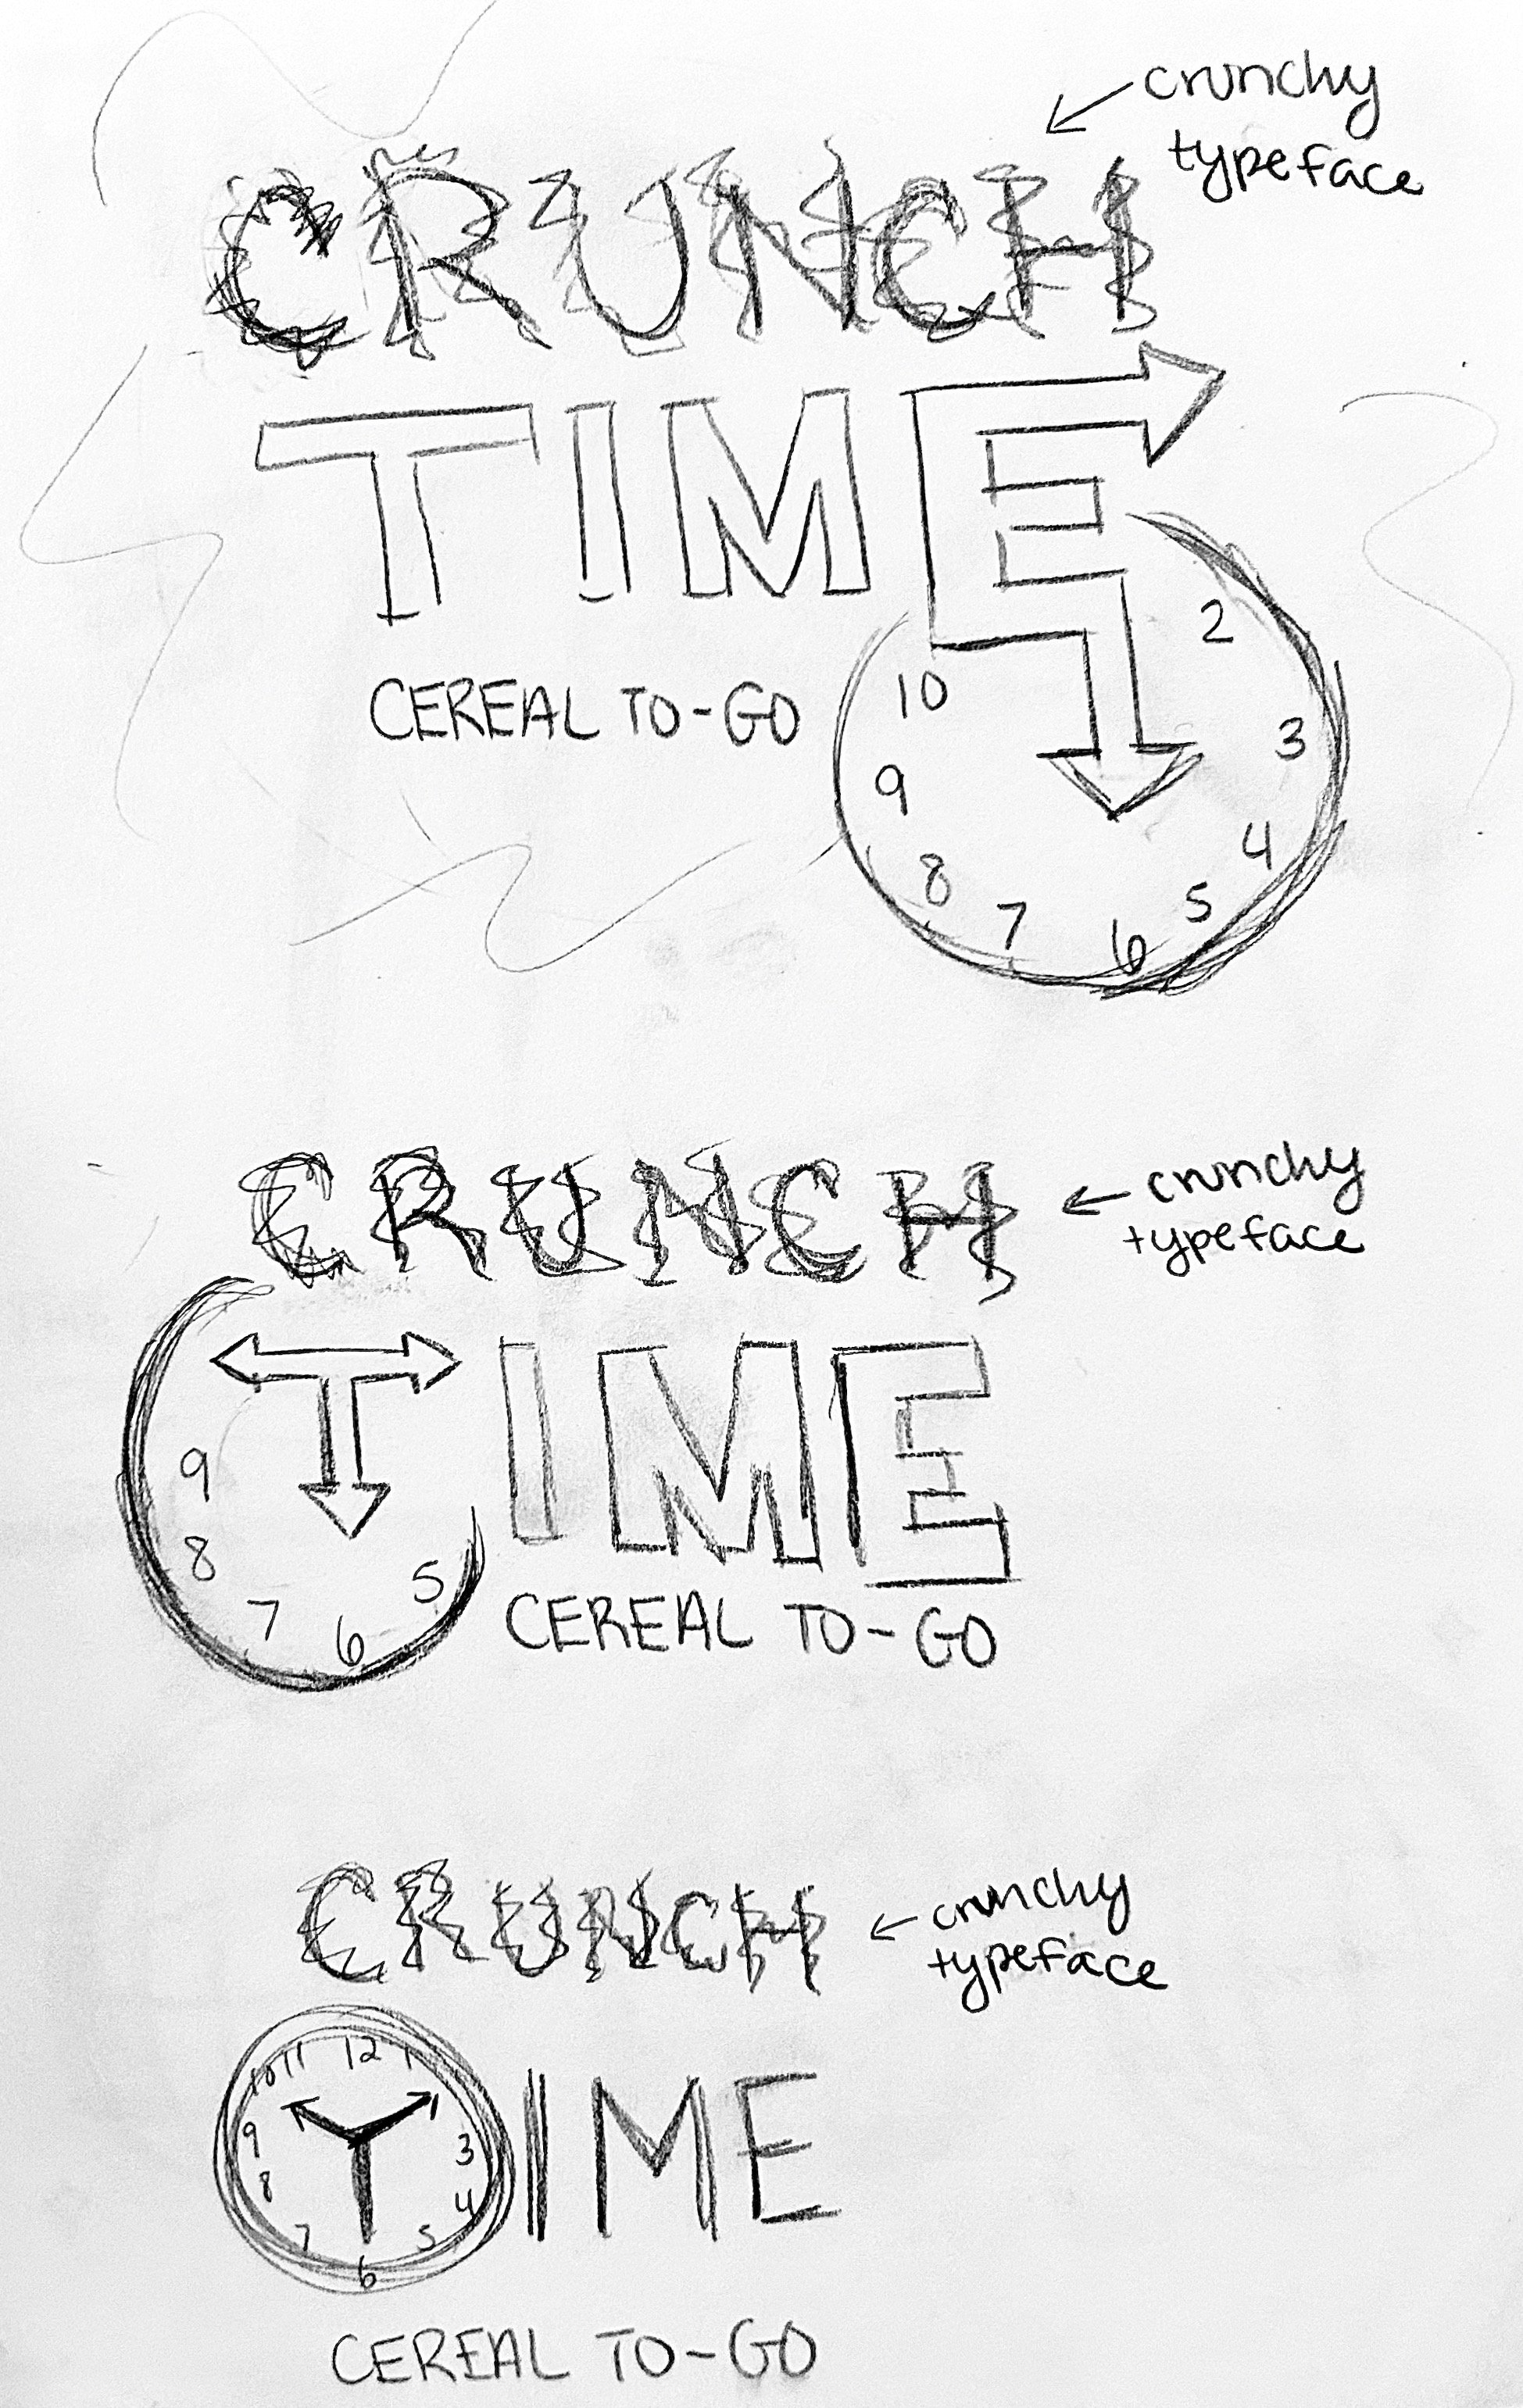 crunchy
typeface
CRUNCH
TIME
CEREAL TO-GO
2
10
3
9
4
8
5
7
6
CRUNCH
crunchy
typeface
TIME
9
8
5
7
6
CEREAL TO-GO
CRUNCH
crunchy
typeface
10 11 12 1
9
3
8
4
7
5
6
IME
CEREAL TO-GO